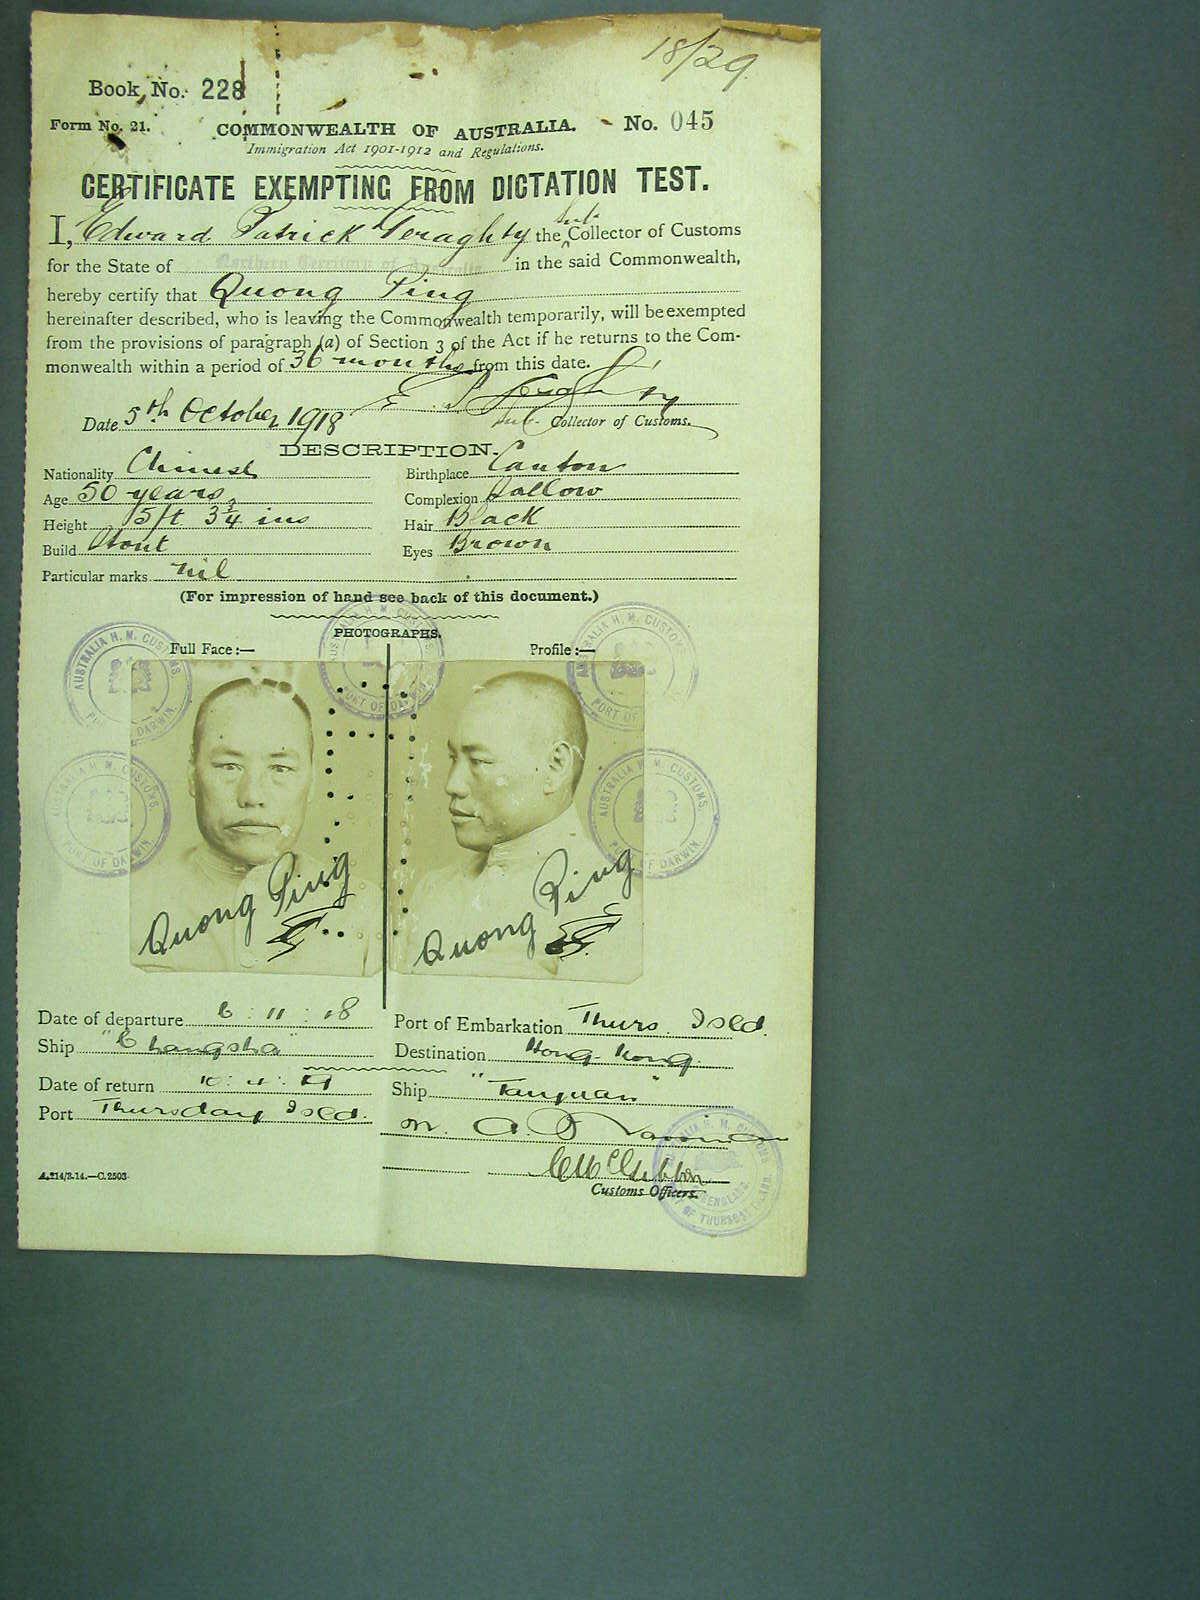 18/29
Book No. 228
Form No. 21. COMMONWEALTH OF AUSTRALIA. No. 045
Immigration Act 1901-1912 and Regulations.
CERTIFICATE EXEMPTING FROM DICTATION TEST.
I, Edward Patrick Geraghty the Sub- Collector of Customs
for the State of Northern Territory of Australia in the said Commonwealth,
hereby certify that Quong Ping
hereinafter described, who is leaving the Commonwealth temporarily, will be exempted
from the provisions of paragraph (a) of Section 3 of the Act if he returns to the Com-
monwealth within a period of 36 months from this date.
E P Geraghty
Date 5th October 1918 Sub- Collector of Customs.
DESCRIPTION.
Nationality Chinese Birthplace Canton
Age 50 years Complexion Sallow
Height 5ft 3¼ ins Hair Black
Build Stout Eyes Brown
Particular marks nil
(For impression of hand see back of this document.)
PHOTOGRAPHS.
Full Face:— Profile:—
AUSTRALIA H. M. CUSTOMS. PORT OF DARWIN.
AUSTRALIA H. M. CUSTOMS. PORT OF DARWIN.
AUSTRALIA H. M. CUSTOMS. PORT OF
AUSTRALIA H. M. CUSTOMS. PORT OF DARWIN.
AUSTRALIA H. M. CUSTOMS. PORT OF DARWIN.
Quong Ping Quong Ping
Date of departure 6:11:18 Port of Embarkation Thurs. Isld.
Ship "Changsha" Destination Hong Kong
Date of return 10:4: Ship "Taiyuan"
Port Thursday Isld.
Customs Officers.
A.214/3.14.—C.2503.
H. M. CUSTOMS QUEENSLAND. PORT OF THURSDAY ISLAND.